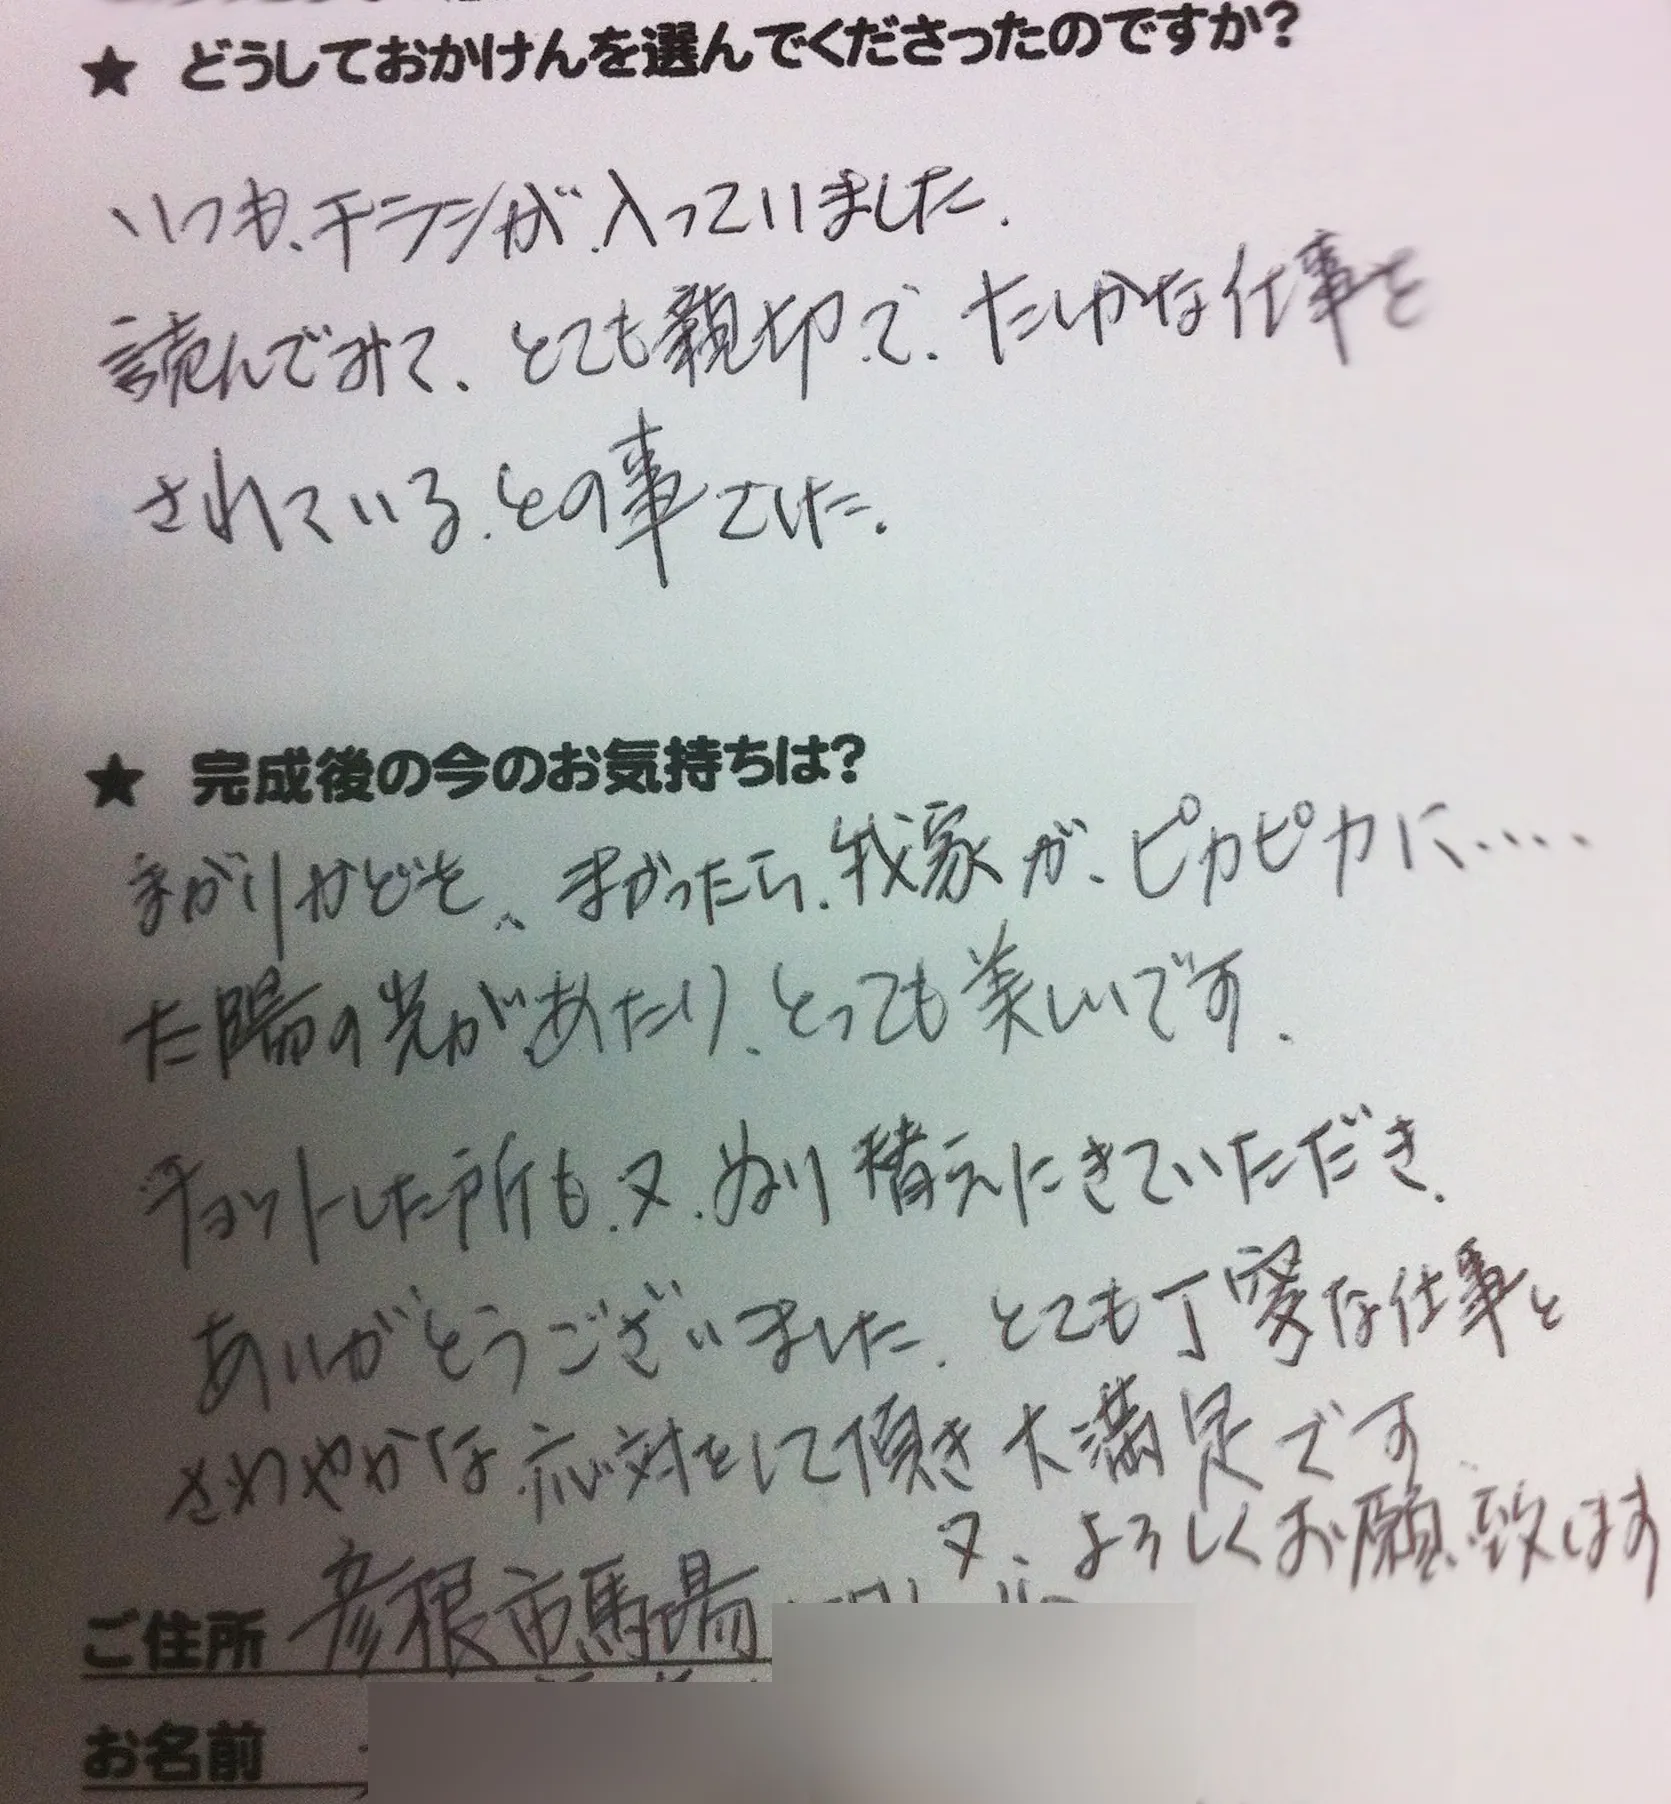 ★ どうしておかけんを選んでくださったのですか?
いつも、チラシが、入っていました.
読んでみて、とても親切で、たしかな仕事を
されている、との事でした.
★ 完成後の今のお気持ちは?
まがりかどを、まがったら、我家が、ピカピカに‥‥
太陽の光が、あたり、とっても美しいです.
チョットした所も、又、ぬり替えにきていただき、
ありがとうございました. とても丁寧な仕事と
さわやかな応対をして頂き大満足です.
又、よろしくお願い致します
ご住所 彦根市馬場
お名前